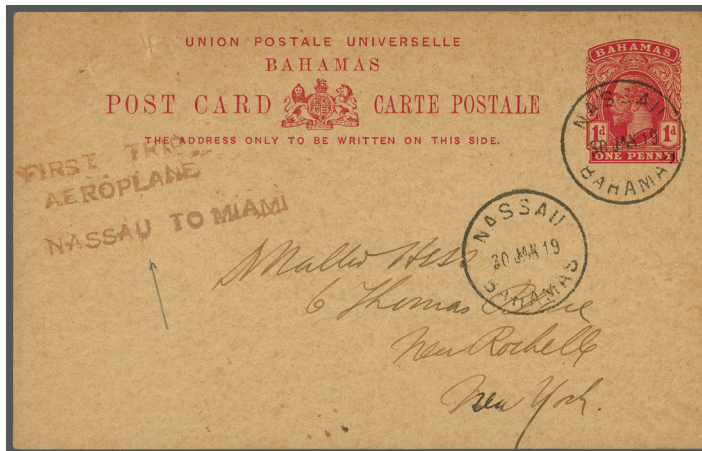 UNION POSTALE UNIVERSELLE
BAHAMAS
POST CARD CARTE POSTALE
THE ADDRESS ONLY TO BE WRITTEN ON THIS SIDE.
BAHAMAS
1d 1d
ONE PENNY
NASSAU
30 JAN 19
BAHAMAS
FIRST TRIP
AEROPLANE
NASSAU TO MIAMI
NASSAU
30 JAN 19
BAHAMAS
Hess
6 Thomas Place
New Rochelle
New York.